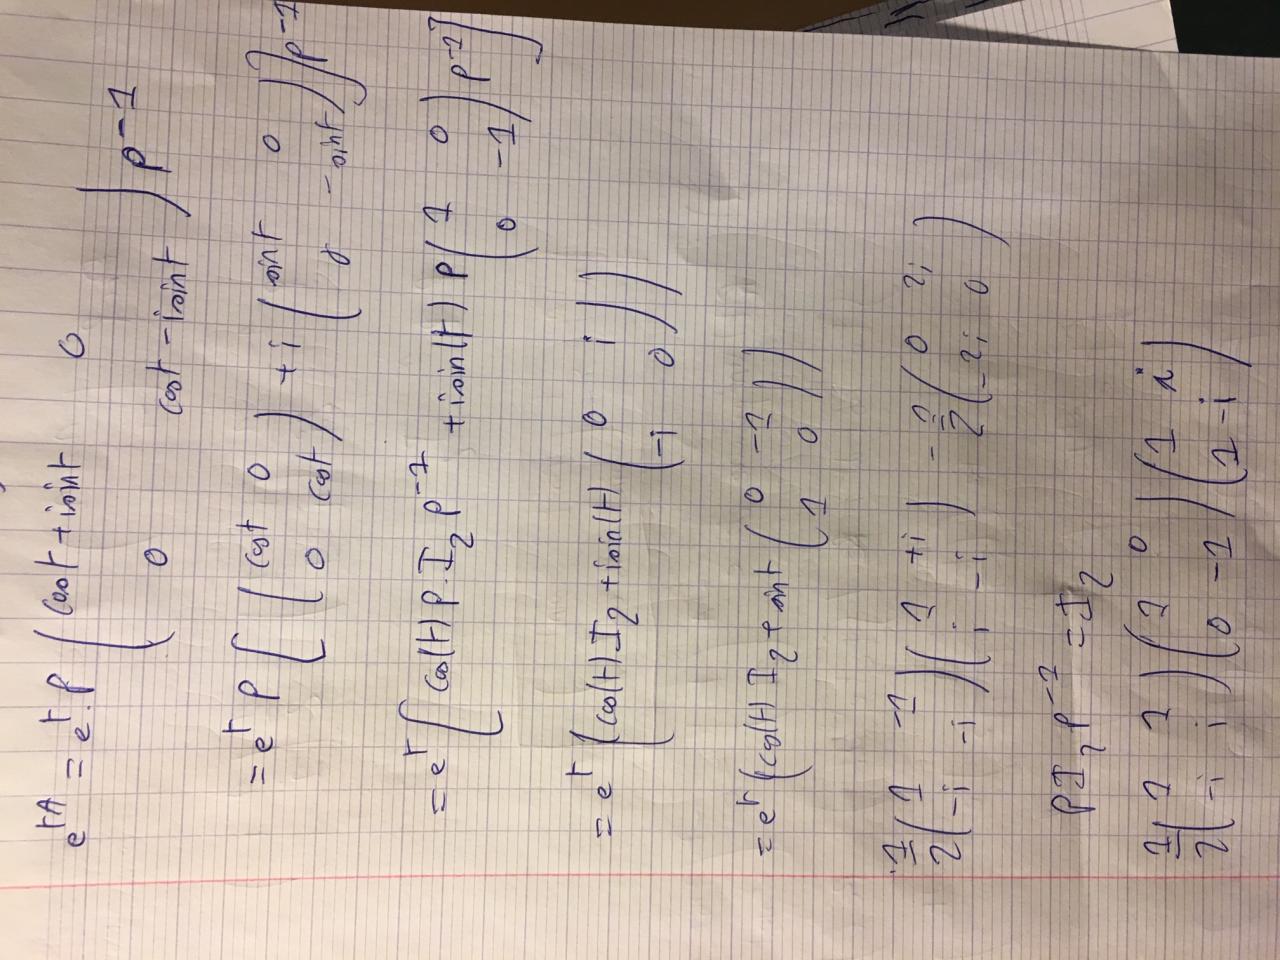 e^{tA} = e^t. P ( cost + isint 0
0 cost - isint ) P^{-1}
= e^t P [ ( cost 0
0 cost ) + i ( sint 0
0 - sint ) ] P^{-1}
= e^t [ cos(t) P. I_2 P^{-1} + isin(t) P ( 1 0
0 -1 ) P^{-1} ]
= e^t ( cos(t) I_2 + isin(t) ( 0 i
-i 0 ) )
= e^t ( cos(t) I_2 + sint ( 0 -1
1 0 ) )
1/2 ( 1 -1
-i -i ) ( 1 +i
i -i ) - 1/2 ( 0 2i
-2i 0 )
P I_2 P^{-1} = I_2
1/2 ( 1 1
-i i ) ( 1 0
0 -1 ) ( 1 i
1 -i )